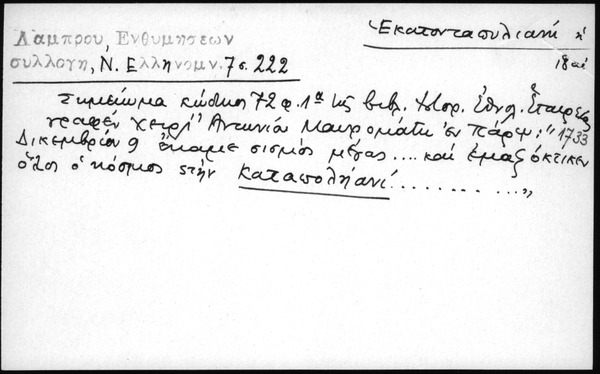 Λάμπρου, Ενθυμησεων
συλλογη, Ν. Ελληνομν. 7 σ. 222
Ἑκατονταπυλιανή ἡ
18 αἰ
Σημείωμα κώδικος 72 φ. 1α τῆς βιβλ. Ἱστορ. Ἐθνολ. Ἑταιρείας
γραφέν χειρὶ Ἀντωνίου Μαυρομμάτη ἐν Πάρῳ: "1733
Δικεμβρίου 9 ἔκαμε σισμὸς μέγας .... καὶ ἐμαζόκτικεν
ὅλος ὁ κόσμος στὴν Καταποληανί. ........ ...."